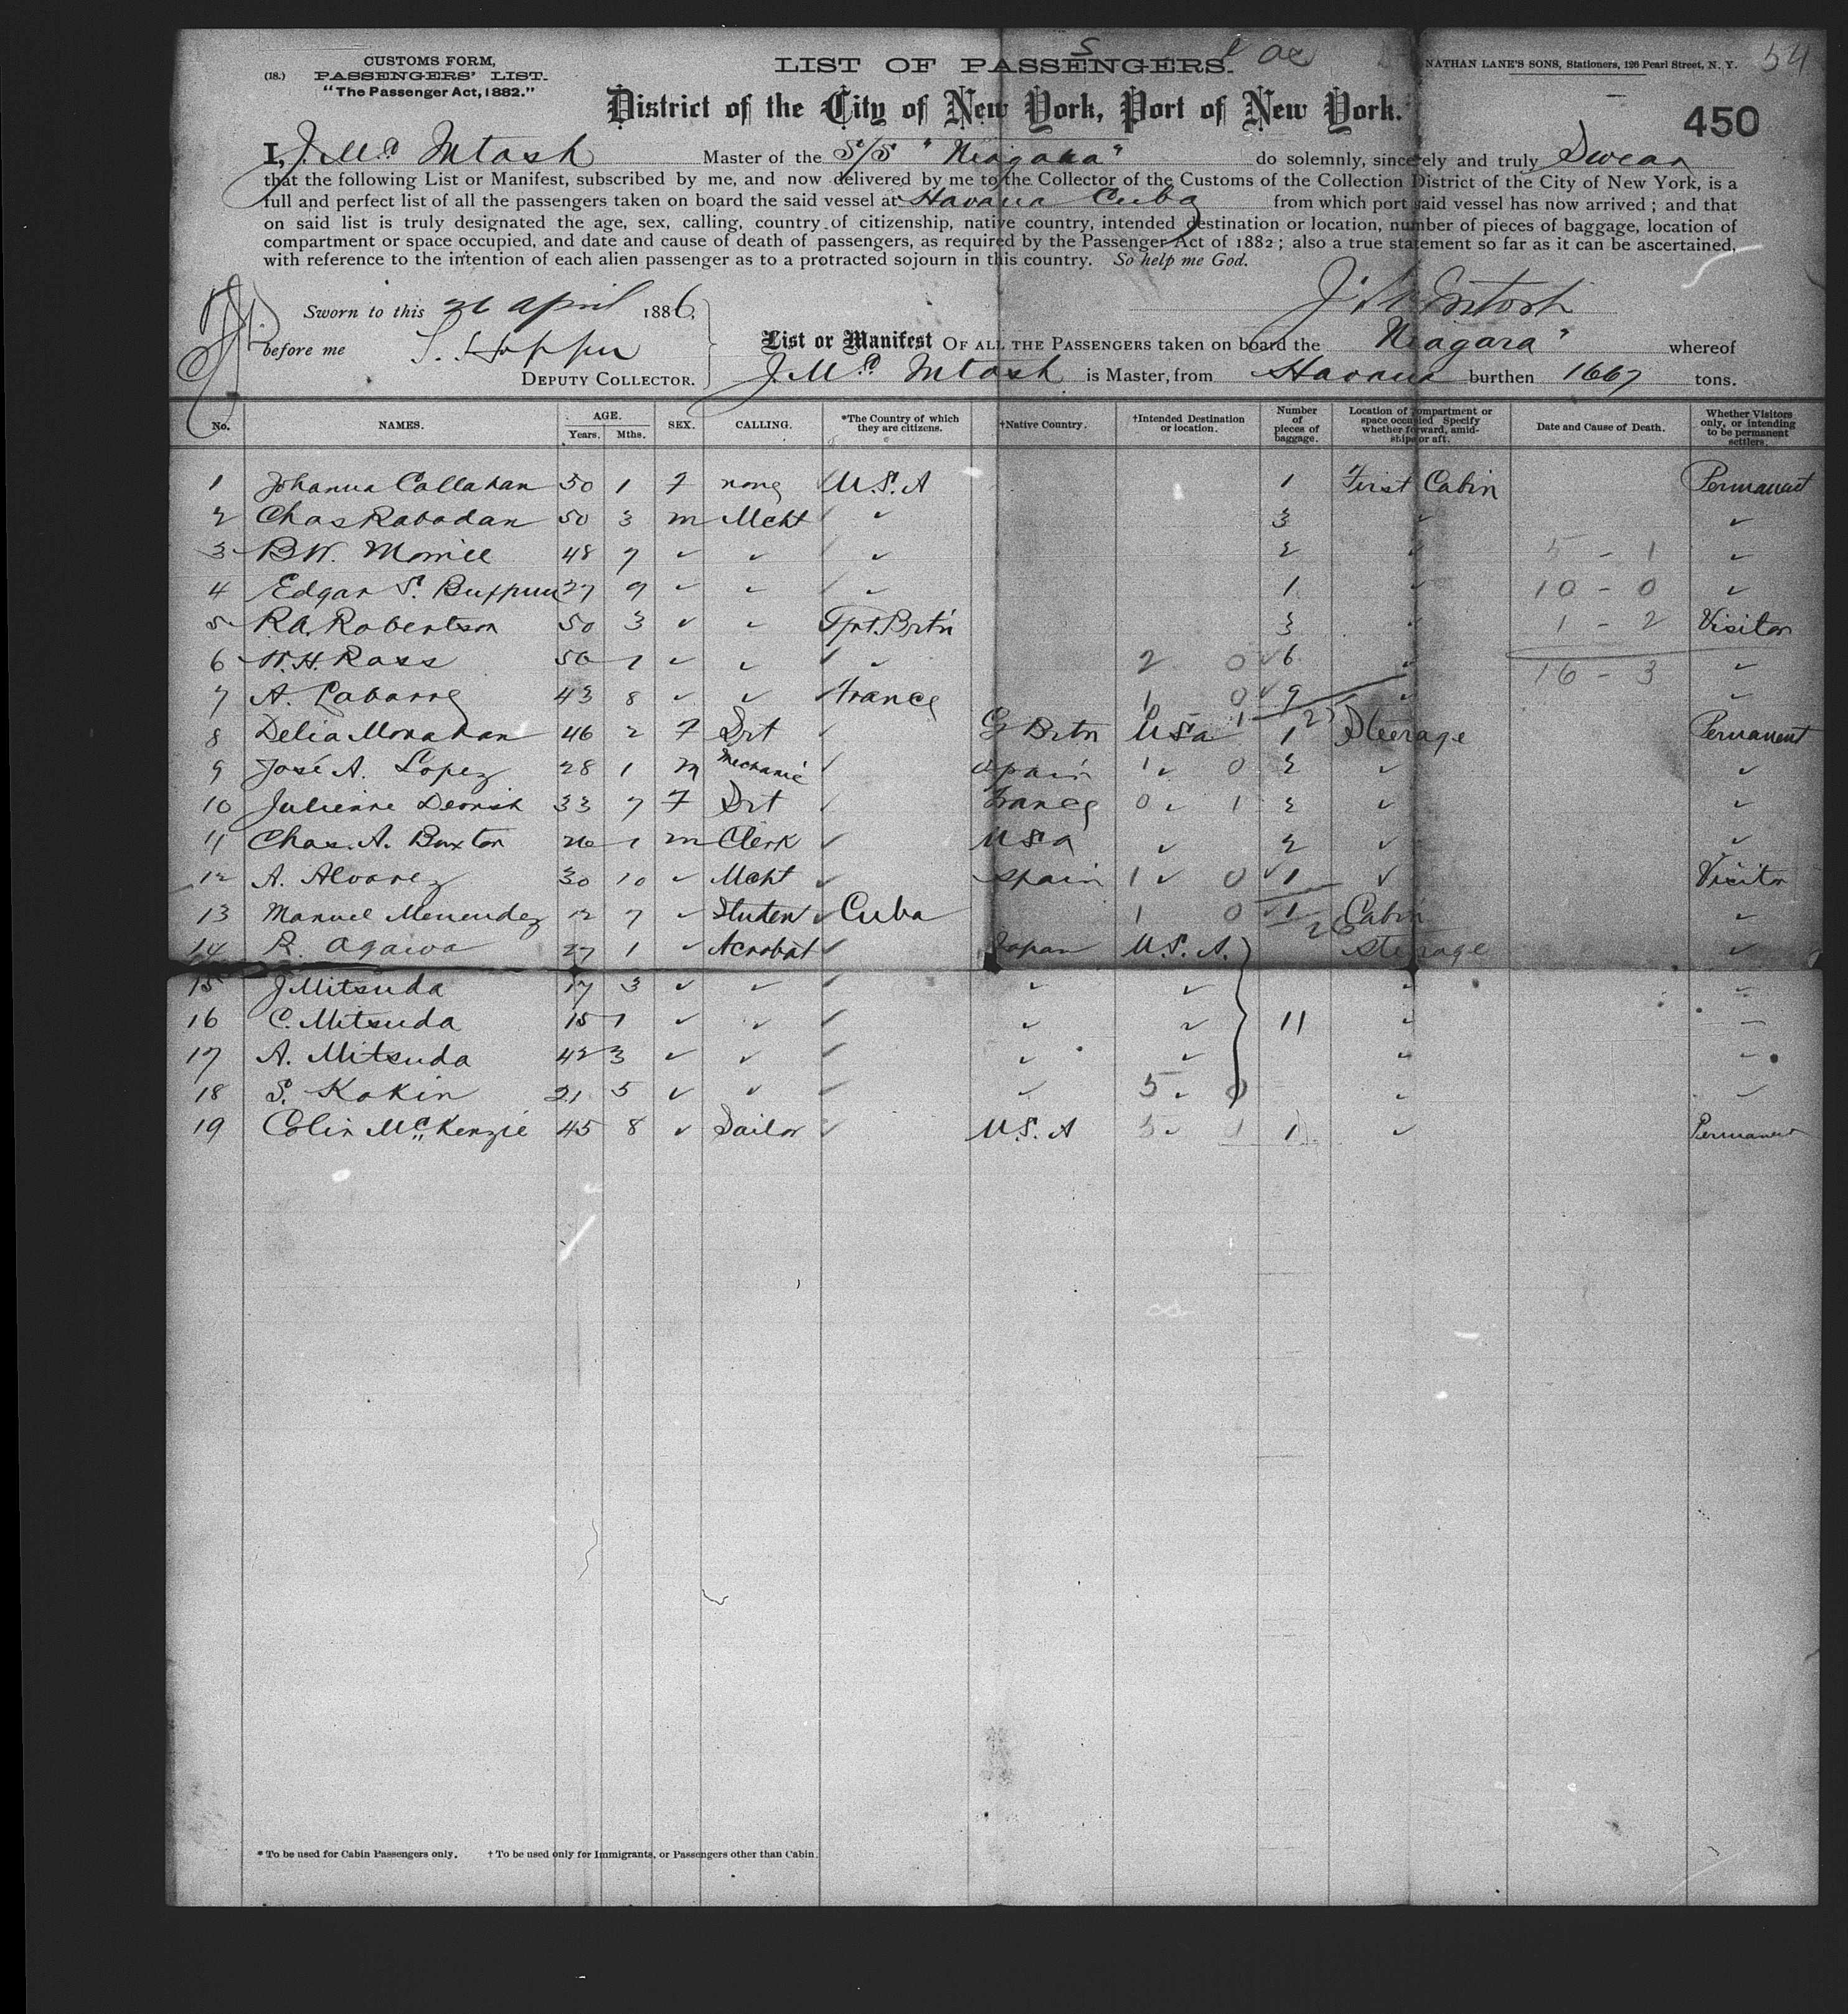 S
54
(18.)
CUSTOMS FORM,
PASSENGERS' LIST.
"The Passenger Act, 1882."
LIST OF PASSENGERS.
NATHAN LANE'S SONS, Stationers, 126 Pearl Street, N. Y.
District of the City of New York, Port of New York.
450
I, J. Mc Intosh Master of the S/S "Niagara" do solemnly, sincerely and truly Swear
that the following List or Manifest, subscribed by me, and now delivered by me to the Collector of the Customs of the Collection District of the City of New York, is a
full and perfect list of all the passengers taken on board the said vessel at Havana Cuba from which port said vessel has now arrived; and that
on said list is truly designated the age, sex, calling, country of citizenship, native country, intended destination or location, number of pieces of baggage, location of
compartment or space occupied, and date and cause of death of passengers, as required by the Passenger Act of 1882; also a true statement so far as it can be ascertained,
with reference to the intention of each alien passenger as to a protracted sojourn in this country. So help me God.
Sworn to this april 1886,
J. McIntosh
before me
List or Manifest OF ALL THE PASSENGERS taken on board the Niagara" whereof
DEPUTY COLLECTOR.
J. Mc Intosh is Master, from Havana burthen 1667 tons.
No. NAMES. AGE. Years. Mths. SEX. CALLING. *The Country of which they are citizens. †Native Country. †Intended Destination or location. Number of pieces of baggage. Location of compartment or space occupied Specify whether forward, amidships or aft. Date and Cause of Death. Whether Visitors only, or intending to be permanent settlers.
1 Johanna Callahan 50 1 F none U.S.A 1 First Cabin Permanent
2 Chas Rabadan 50 3 m Mcht 3
3 B W. Morrill 48 7 2 5 - 1
4 Edgar S. Buffum 27 9 1 10 - 0
5 R. A. Robertson 50 3 Grt. Brtn 3 1 - 2 Visitor
6 W. H. Ross 50 1 2 0 6 16 - 3
7 A. Labarre 43 8 France 1 0 9
8 Delia Monahan 46 2 F Srt G Brtn USa 1 Steerage Permanent
9 José A. Lopez 28 1 m Mechanic Spain 1 0 2
10 Julienne 33 7 F Srt France 0 1 2
11 Chas. A. Buxton 26 1 m Clerk USa 2
12 A. Alvarez 30 10 Mcht Spain 1 0 1 Visitor
13 Manuel Menendez 12 7 Studen Cuba 1 0 1 Cabin
14 R. Ogawa 27 1 Acrobat Japan U.S.A. Steerage
15 J Mitsuda 17 3
16 C. Mitsuda 15 1 11
17 A. Mitsuda 42 3
18 S. Kokin 21 5 5 0
19 Colin McKenzie 45 8 Sailor U.S.A 1 Permanent
* To be used for Cabin Passengers only. † To be used only for Immigrants, or Passengers other than Cabin.